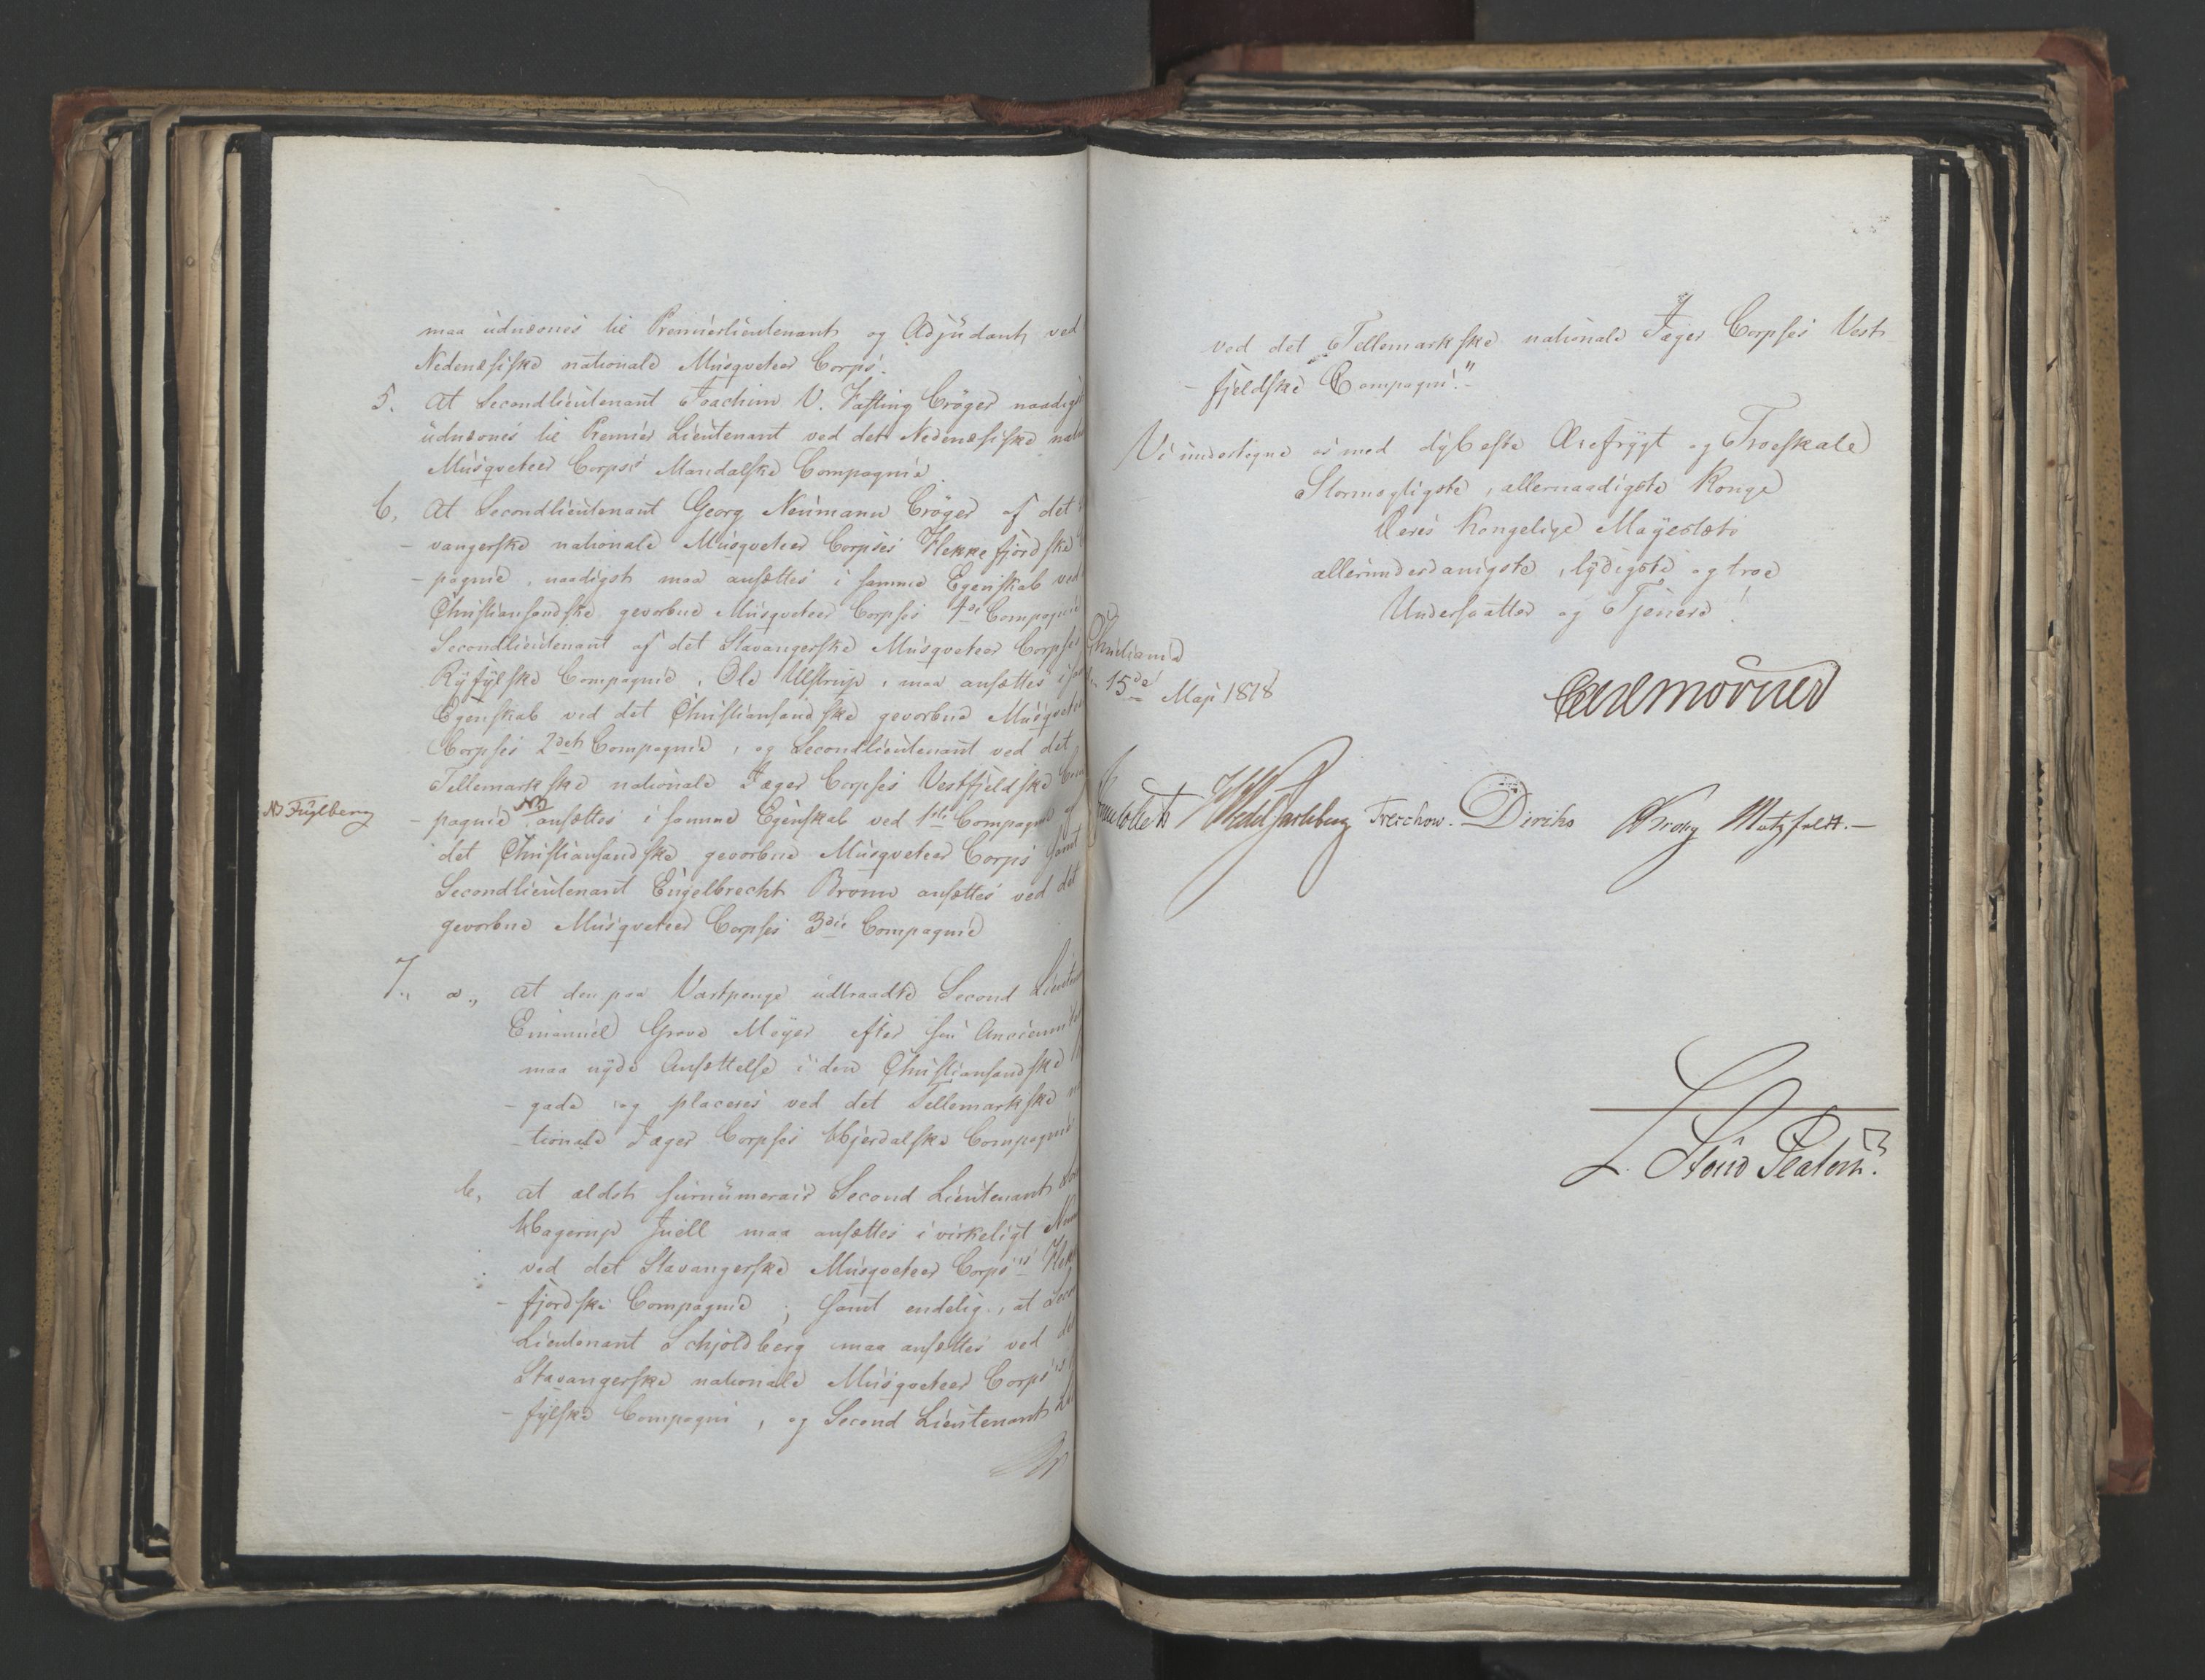 maa udnævnes til Premierlieutenant og Adjudant ved
Nedenæssiske nationale Musqveteer Corps.
5. At Secondlieutenant Joachim V. Fasting Crøger naadigst
udnævnes til Premier Lieutenant ved det Nedenæssiske
Musqveteer Corpses Mandalske Compagnie.
6, At Secondlieutenant Georg Neumann Crøger af det
- vangerske nationale Musqveteer Corpses Flekkefjordske
- pagnie, naadigst maa ansættes i samme Egenskab ved
Christiansandske gevorbne Musqveteer Corpses 4de Compagnie
Secondlieutenant af det Stavangerske Musqveteer Corpses
Ryfylske Compagnie, Ole Ulstrup, maa ansættes i
Egenskab ved det Christiansandske gevorbne Musqveteer
Corpses 2det Compagnie, og Secondlieutenant ved det
Tellemarkske nationale Jæger Corpses Vestfjeldske Com
NB Fuglberg
- pagnie NB ansættes i samme Egenskab ved 1ste Compagnie af
det Christiansandske gevorbne Musqveteer Corps samt
Secondlieutenant Engelbrecht Bronn ansættes ved det
gevorbne Musqveteer Corpses 3die Compagnie
7., a., at den paa Vartpenge udtraadte Second Lieuten
Emanuel Grove Meyer efter sin Ancienni
maa nyde Ansættelse i den Christiansandske
- gade og placeres ved det Tellemarkske
- tionale Jæger Corpses Hjerdalske Compagnie
b, at ældst surnumerair Second Lieutenant
Hagerup Juell maa ansættes i virkeligt
ved det Stavangerske Musqveteer Corps's Flek
- fjordske Compagnie; samt endelig, at Secon
Lieutenant Schjoldberg maa ansættes ved det
Stavangerske nationale Musqveteer Corps's
- fylske Compagni, og Second Lieutenant
ved det Tellemarkske nationale Jæger Corpses Vest-
- fjeldske Compagni."
Vi undertegne os med dybeste Ærefrygt og Troeskab
Stormægtigste, allernaadigste Konge
Deres Kongelige Mayestæts
allerunderdanigste, lydigste og troe
Undersaatter og Tjenere!
Christiania
den 15de Maji 1818
Carl Mörner
Sommerhielm H Wedel Jarlsberg Treschow. Diriks C Krohg Motzfeldt.-